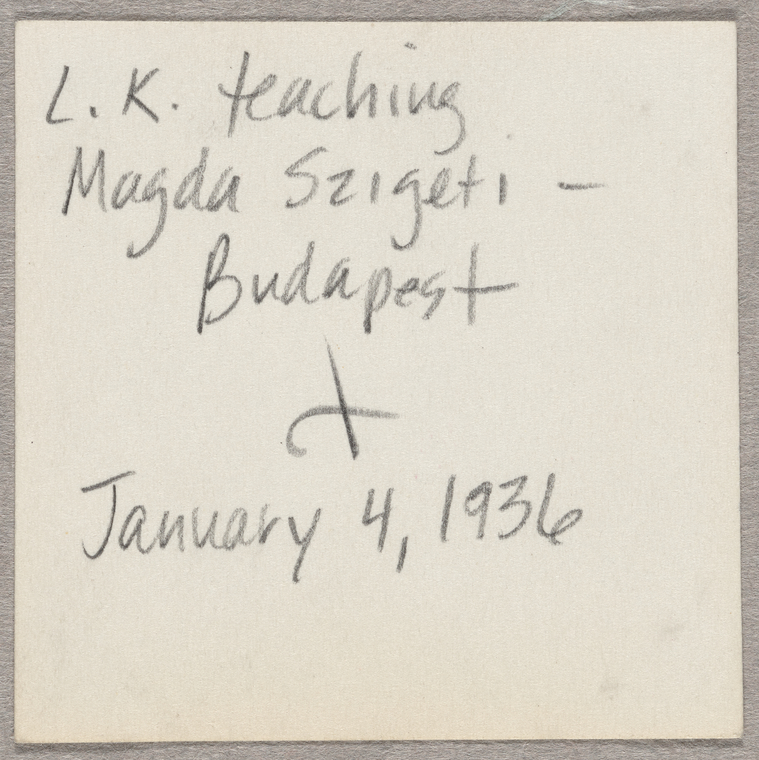 L. K. teaching
Magda Szigeti –
Budapest
+
January 4, 1936